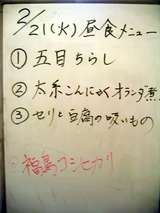 2/21(火)昼食メニュー
① 五目ちらし
② 太糸こんにゃくオランダ煮
③ セリと豆腐の吸いもの
福島コシヒカリ